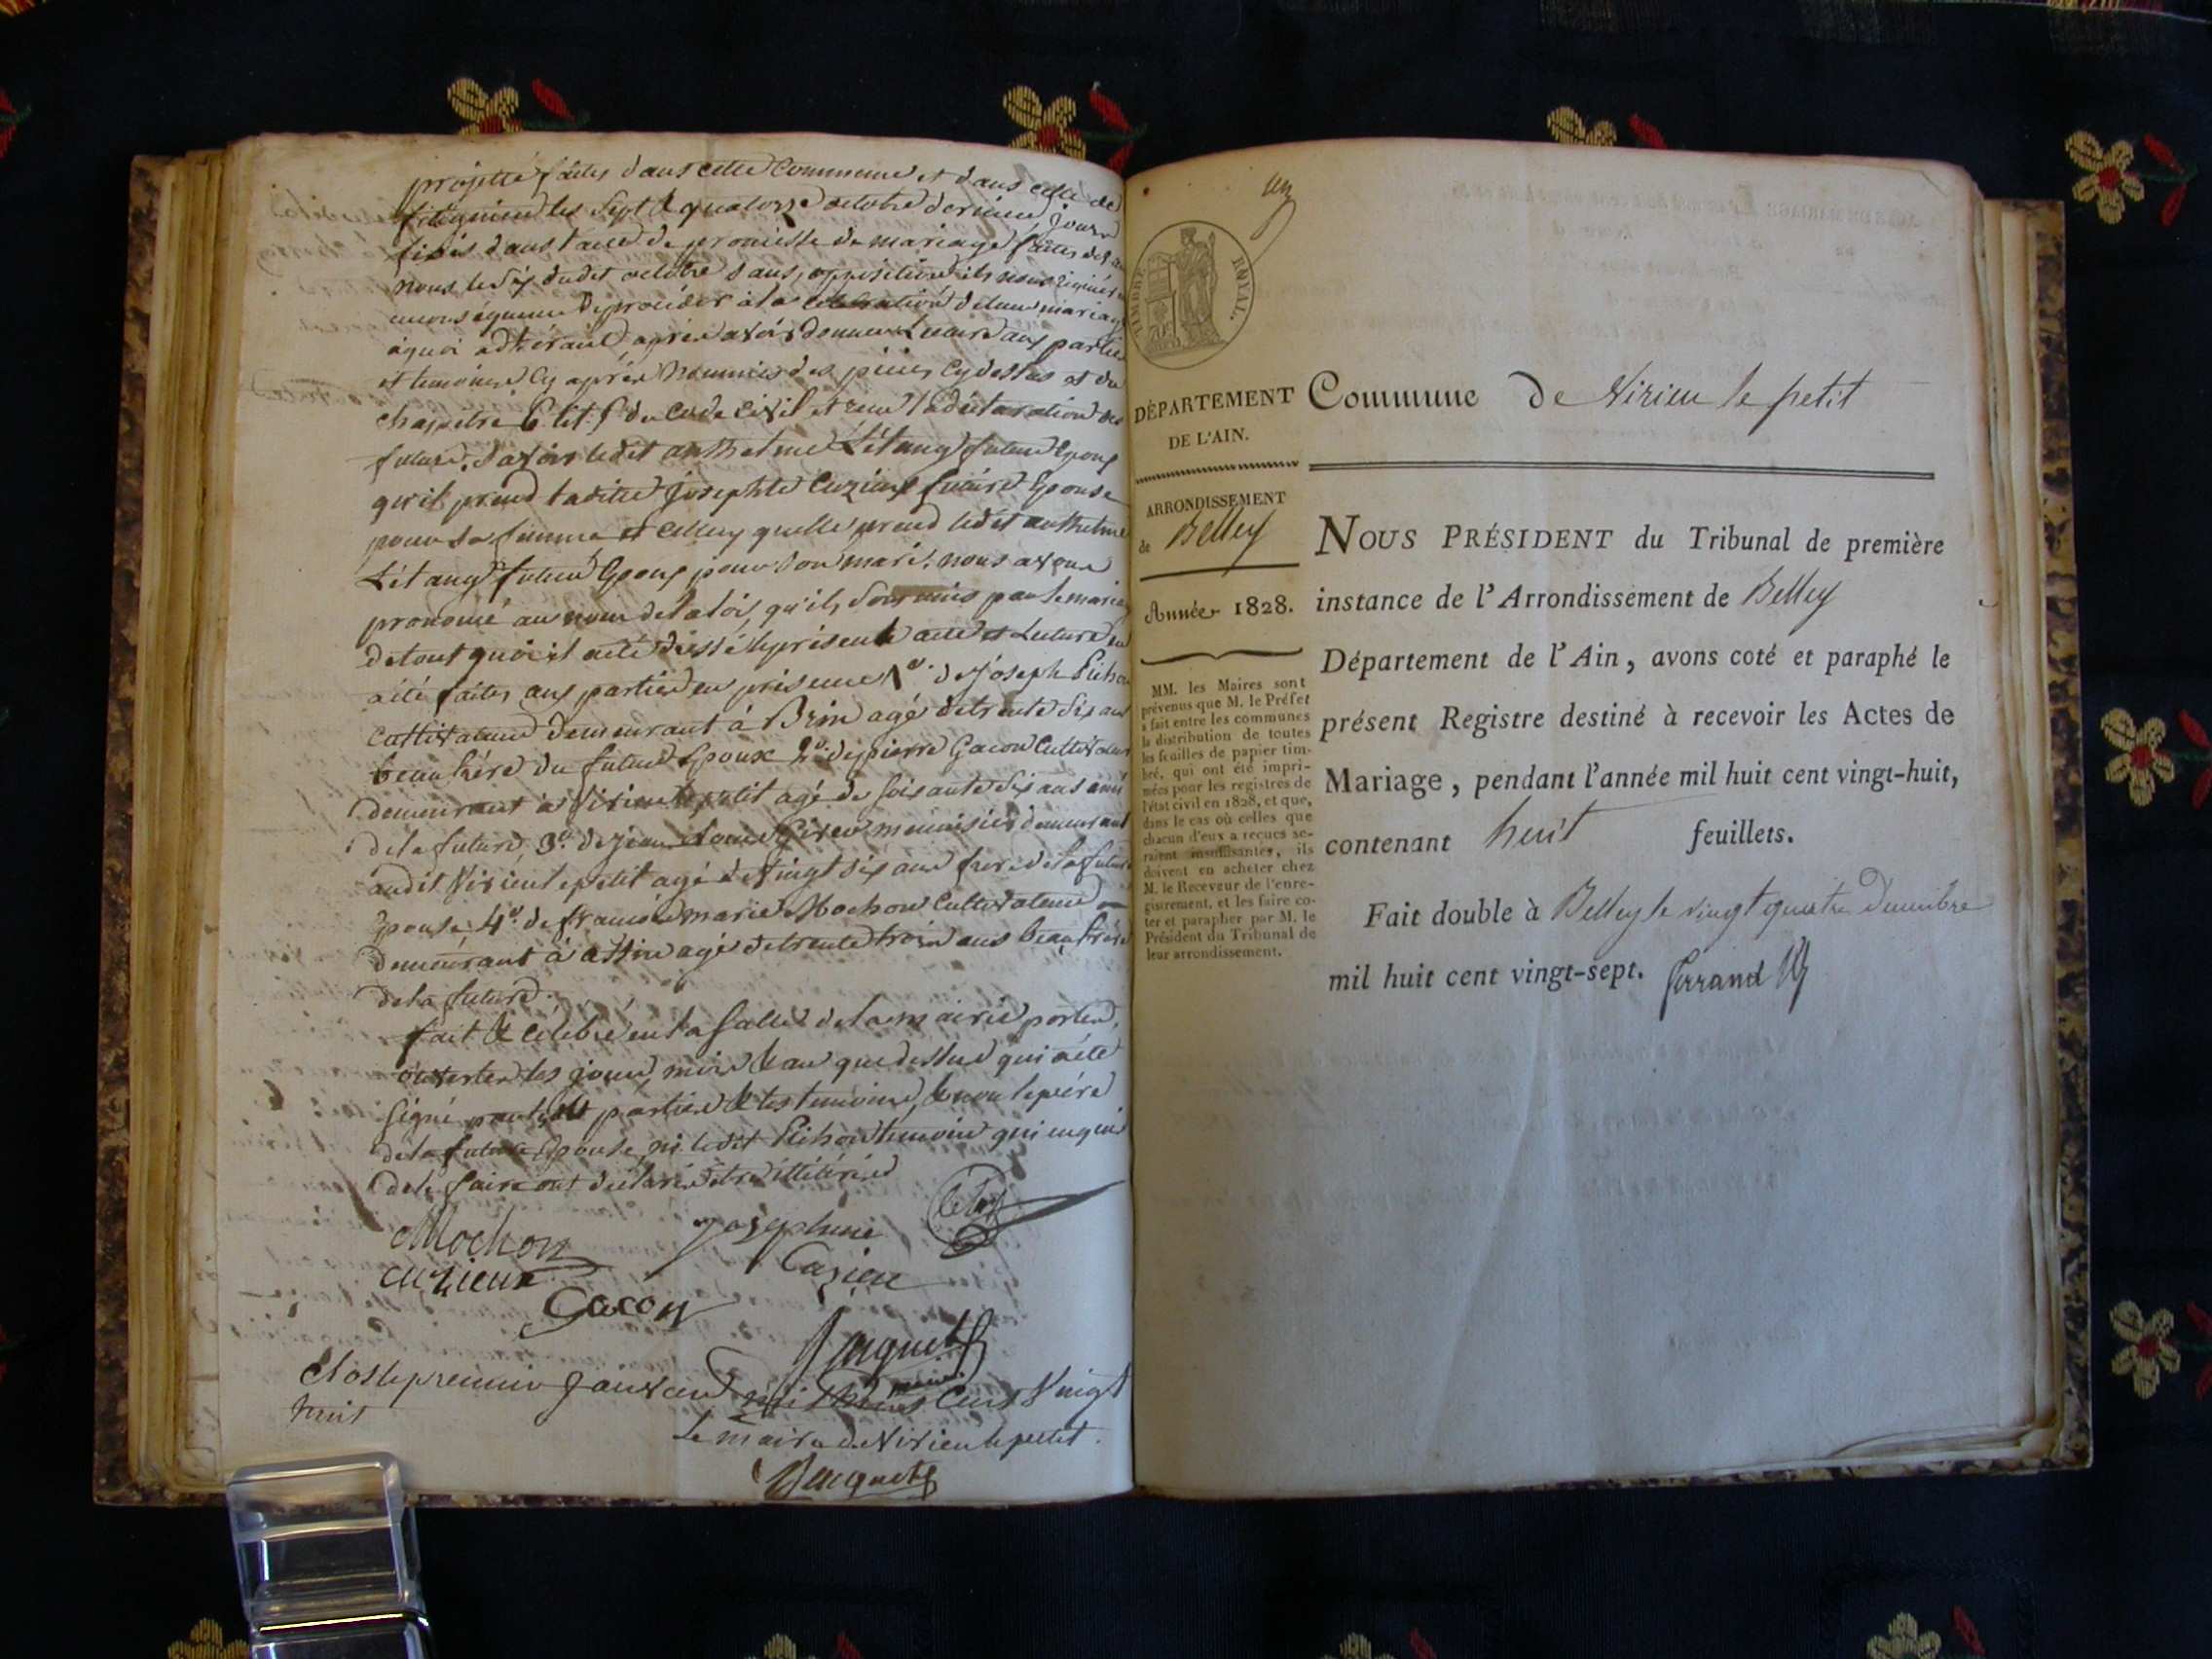 projetté faites dans cette Commune et dans celle de
les Sept & quatorze octobre dernier, jours
fixés dans l'acte de promesse de mariage faites
nous le Six dudit octobre sans opposition ils nous
en conséquence de procéder à la célébration de leur mariage
à quoi adhérant, après avoir donné Lecture aux parties
et temoins cy après nommés des pièces cy dessus et du
chapitre 6 tit. 5 du code civil et reçu la déclaration des
futurs, Savoir ledit anthelme Létang futur Epoux
qu'il prend ladite Josephte Cuzieux future Epouse
pour sa femme et celle cy quelle prend ledit anthelme
Létang futur Epoux pour son mari, nous avons
prononcé au nom de la loi, qu'ils sont unis par le mariage
de tout quoi il a été dressé le présent acte et Lecture en
a été faites aux parties en présence 1º. de Joseph
Cultivateur demeurant à Brin agé de trente Six ans
beau frère du futur Epoux 2º. de pierre Gacon Cultivateur
demeurant à Virieu le petit agé de Soixante Six ans ami
de la future, 3º. de Jean menuisier demeurant
audit Virieu le petit agé de Vingt Six ans frere de la future
Epouse 4º. de françois marie Mochon Cultivateur
demeurant à assin agé de trente trois ans beau frère
de la future.
fait & célébré en la Salle de la mairie portes
ouvertes les jour, mois & an que dessus qui a été
signé par les parties & les temoins, & non le père
de la future Epouse, ni ledit temoin qui enquis
de le faire ont déclaré être illitérés
Mochon Josephine
cuzieux Cuzieu
Gacon
Jaquet
maire
Clos le premier Janvier mil huit Cent Vingt
huit
Le maire de Virieu le petit.
Jaquet
un
TIMBRE ROYAL.
DÉPARTEMENT
DE L'AIN.
ARRONDISSEMENT
de Belley
Année 1828.
MM. les Maires sont
prévenus que M. le Préfet
a fait entre les communes
la distribution de toutes
les feuilles de papier tim-
bré, qui ont été impri-
mées pour les registres de
l'état civil en 1828, et que,
dans le cas où celles que
chacun d'eux a reçues se-
raient insuffisantes, ils
doivent en acheter chez
M. le Receveur de l'enre-
gistrement, et les faire co-
ter et parapher par M. le
Président du Tribunal de
leur arrondissement.
Commune de Virieu le petit
NOUS PRÉSIDENT du Tribunal de première
instance de l'Arrondissement de Belley
Département de l'Ain, avons coté et paraphé le
présent Registre destiné à recevoir les Actes de
Mariage, pendant l'année mil huit cent vingt-huit,
contenant huit feuillets.
Fait double à Belley le vingt quatre Decembre
mil huit cent vingt-sept. Ferrand